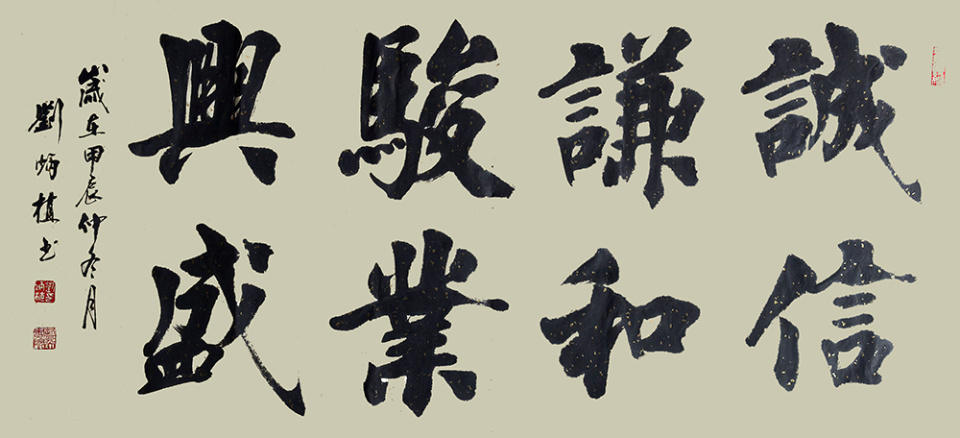 誠信
謙和
駿業
興盛
歲在甲辰仲冬月
劉炳植書